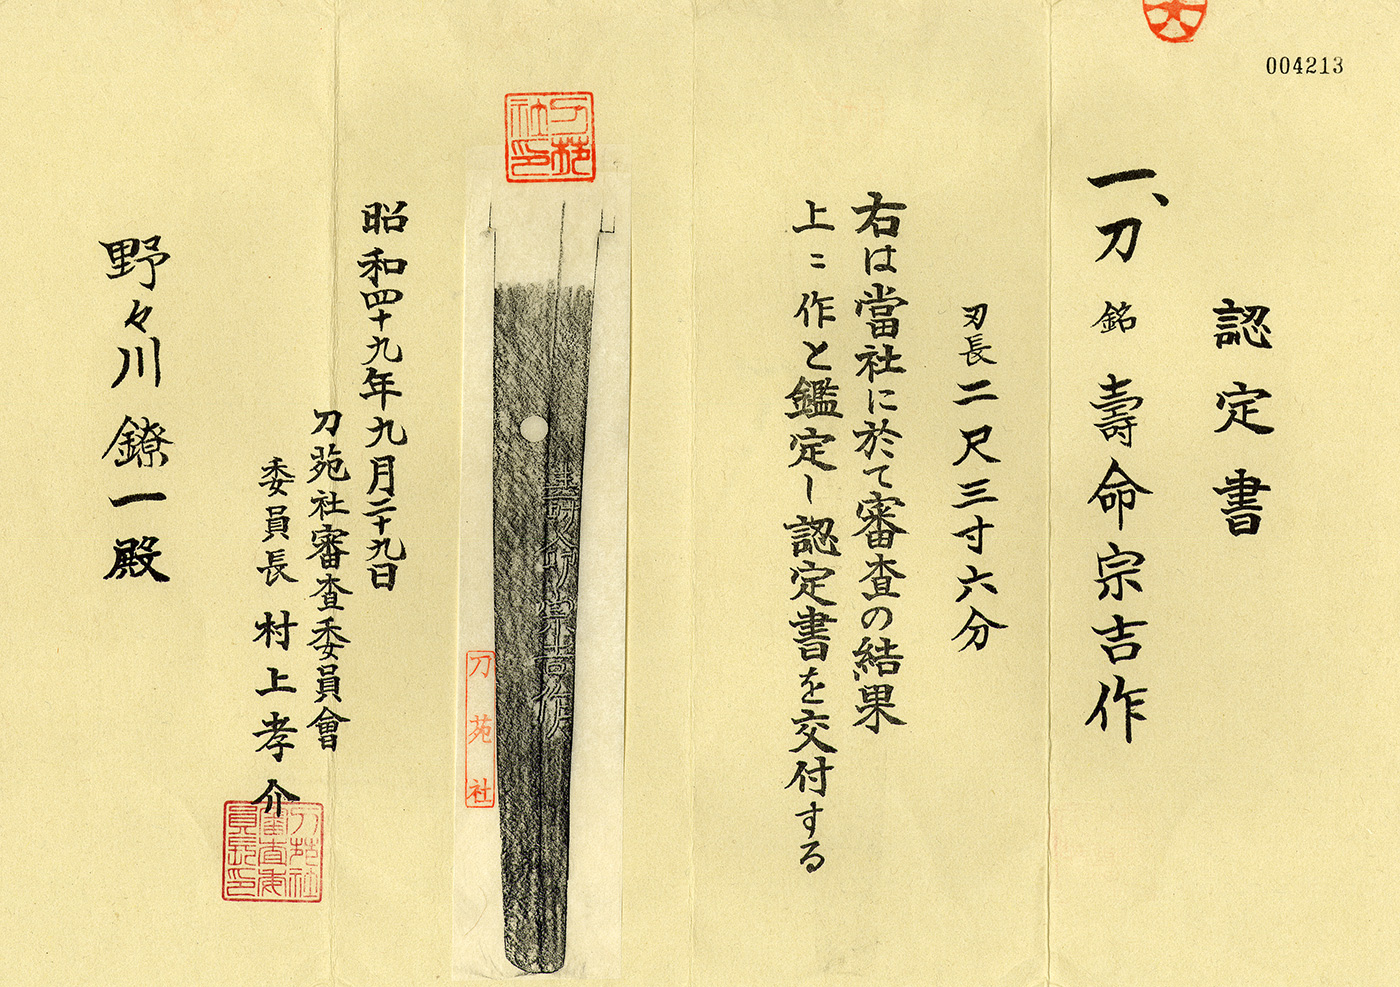 004213
認定書
一、刀 銘 壽命宗吉作
刃長 二尺三寸六分
右は當社に於て審査の結果
上ニ作と鑑定し認定書を交付する
刀苑社印
壽命宗吉作
刀苑社
昭和四十九年九月二十九日
刀苑社審査委員會
委員長 村上孝介
刀苑社審査委員長印
野々川鐐一殿